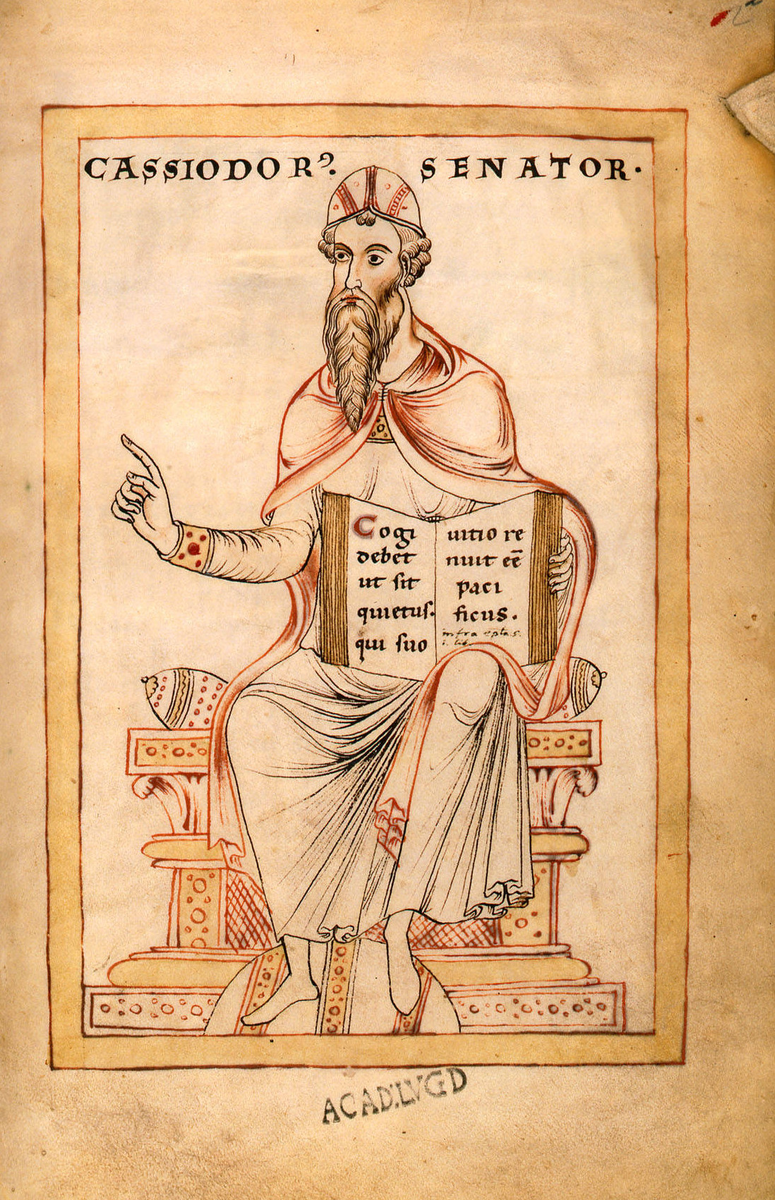 CASSIODORꝰ. SENATOR.
Cogi
debet
ut sit
quietus.
qui suo
uitio re
nuit eē
paci
ficus.
infra
i. lib.
ACAD. LVGD